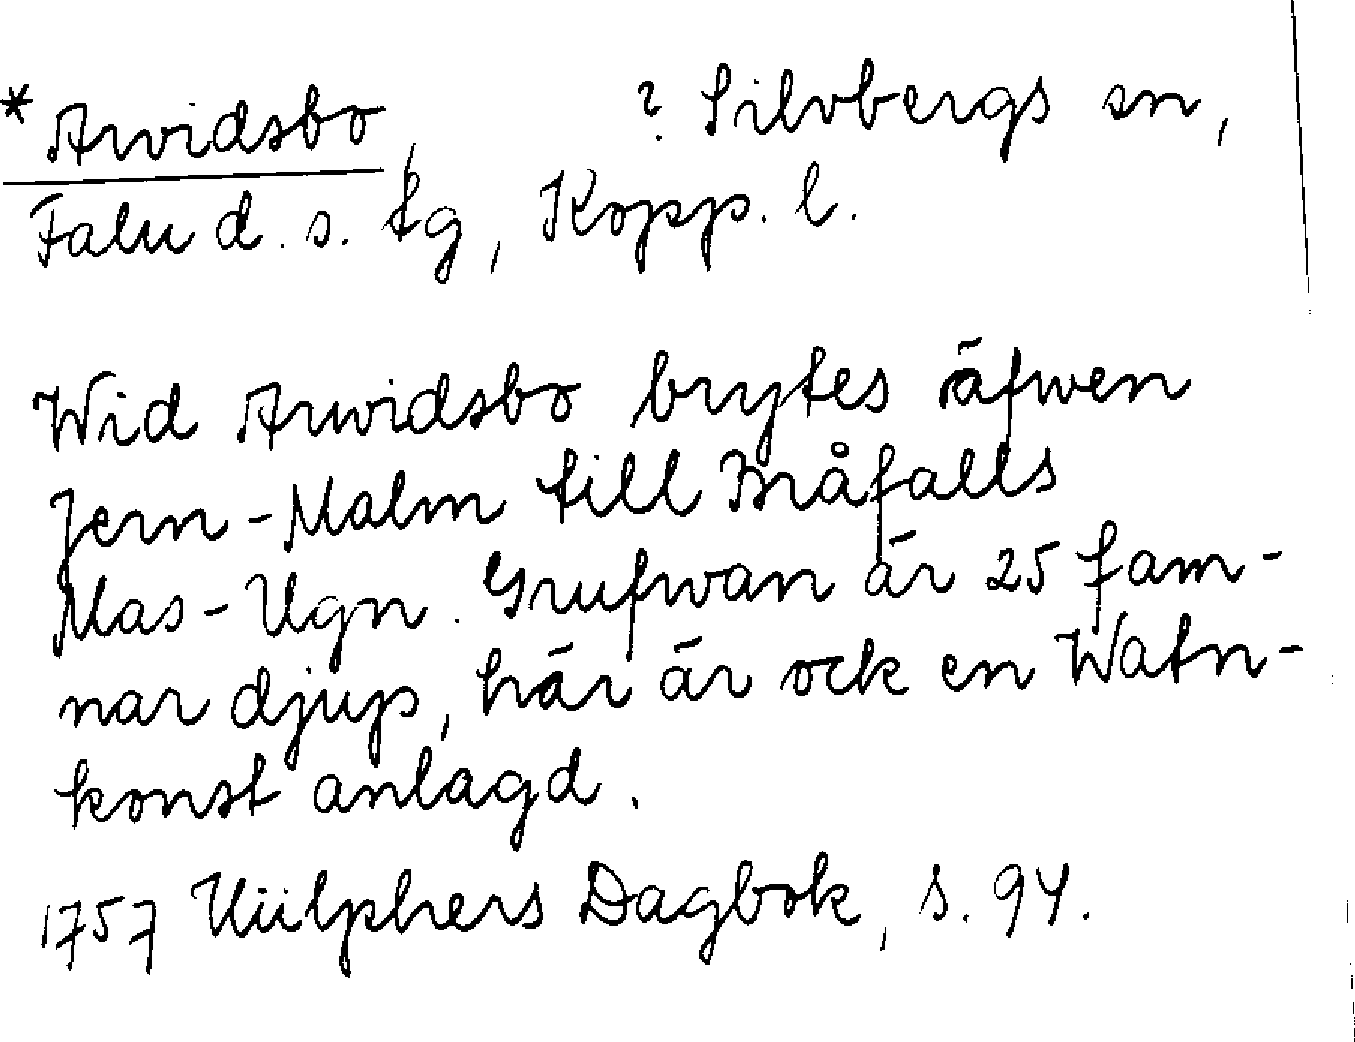 *Arvidsbo, ? Silvbergs sn,
Falu d. s. tg, Kopp. l.
Wid Arwidsbo brytes äfwen
Jern-Malm till Bråfalls
Mas-Ugn. Grufwan är 25 fam-
nar djup, här är ock en Watn-
konst anlagd.
1757 Hülphers Dagbok, s. 94.